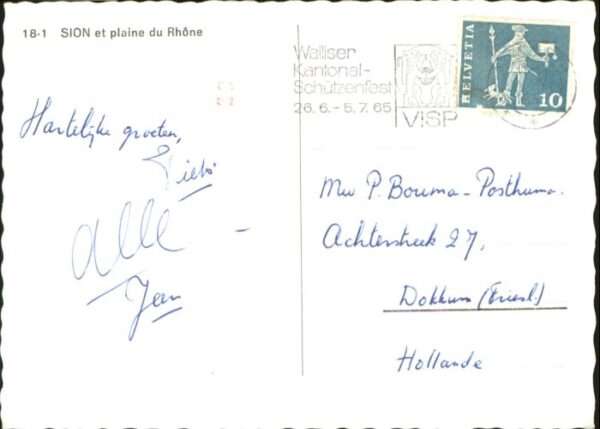 18-1 SION et plaine du Rhône
Walliser
Kantonal-
Schützenfest
26.6.-5.7.65
VISP
HELVETIA
10
Hartelijke groeten,
Alle
Jeen
Mw P. Bouma-Posthuma.
Achterstreek 27,
Dokkum (Friesl.)
Hollande